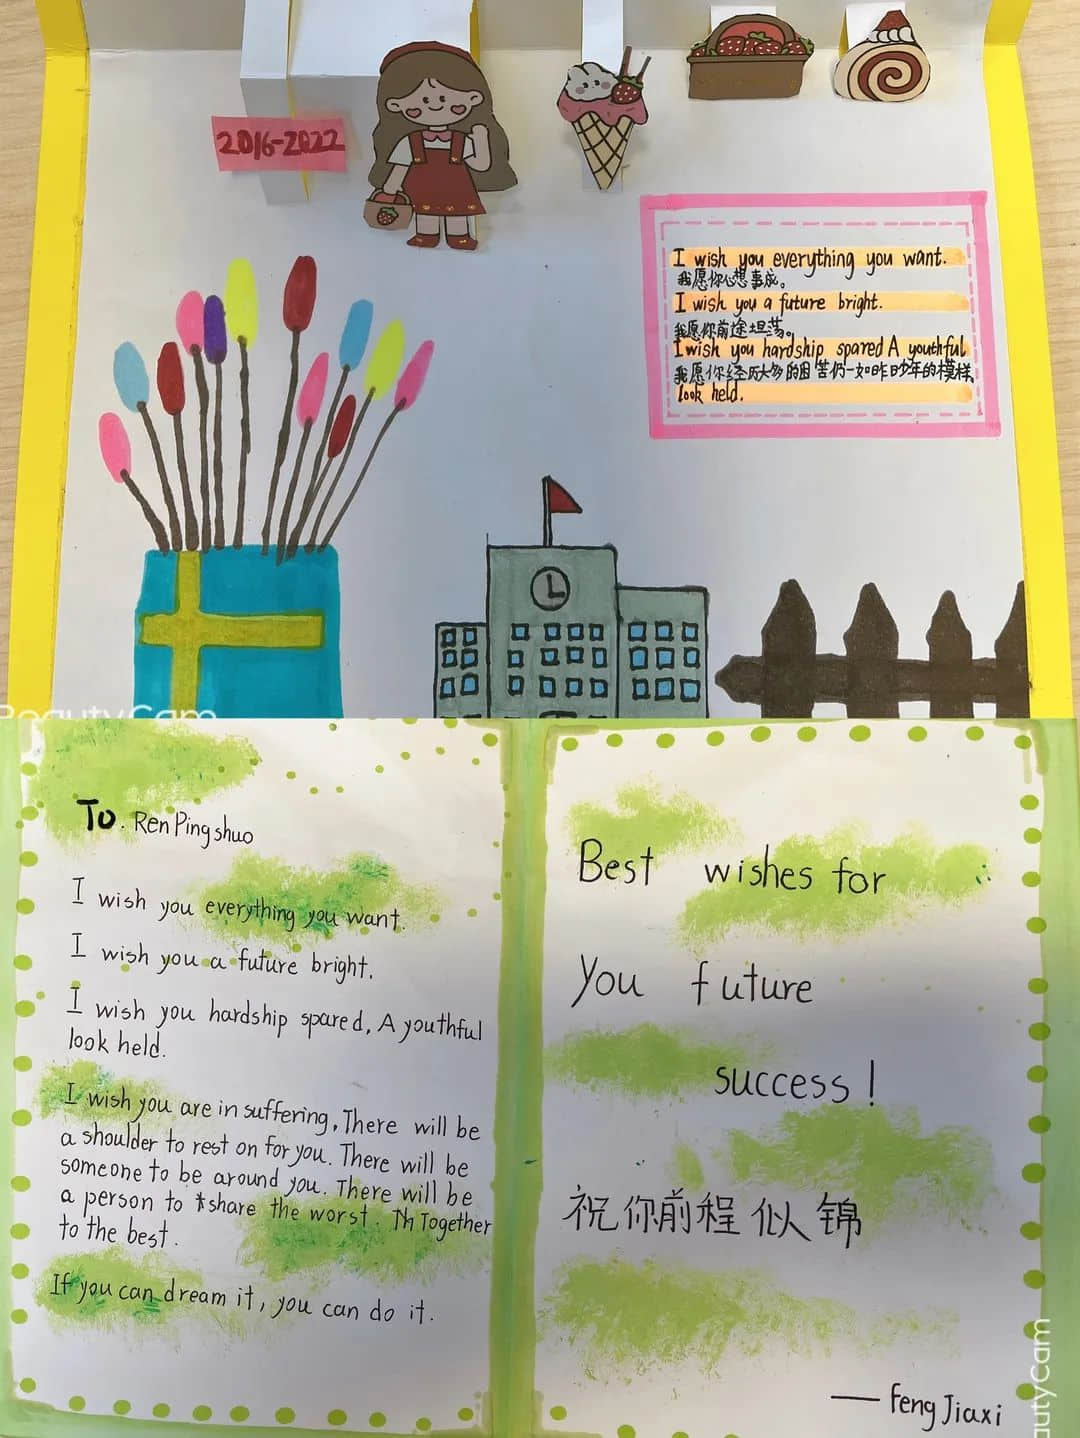 2016-2022
I wish you everything you want.
我愿你心想事成。
I wish you a future bright.
我愿你前途坦荡。
I wish you hardship spared A youthful
我愿你经历太多的困苦仍一如昨日少年的模样
look held.
BeautyCam
To. Ren Pingshuo
I wish you everything you want.
I wish you a future bright.
I wish you hardship spared, A youthful
look held.
I wish you are in suffering, There will be
a shoulder to rest on for you. There will be
someone to be around you. There will be
a person to share the worst. Together
to the best.
If you can dream it, you can do it.
Best wishes for
you future
success!
祝你前程似锦
—— Feng Jiaxi
autyCam